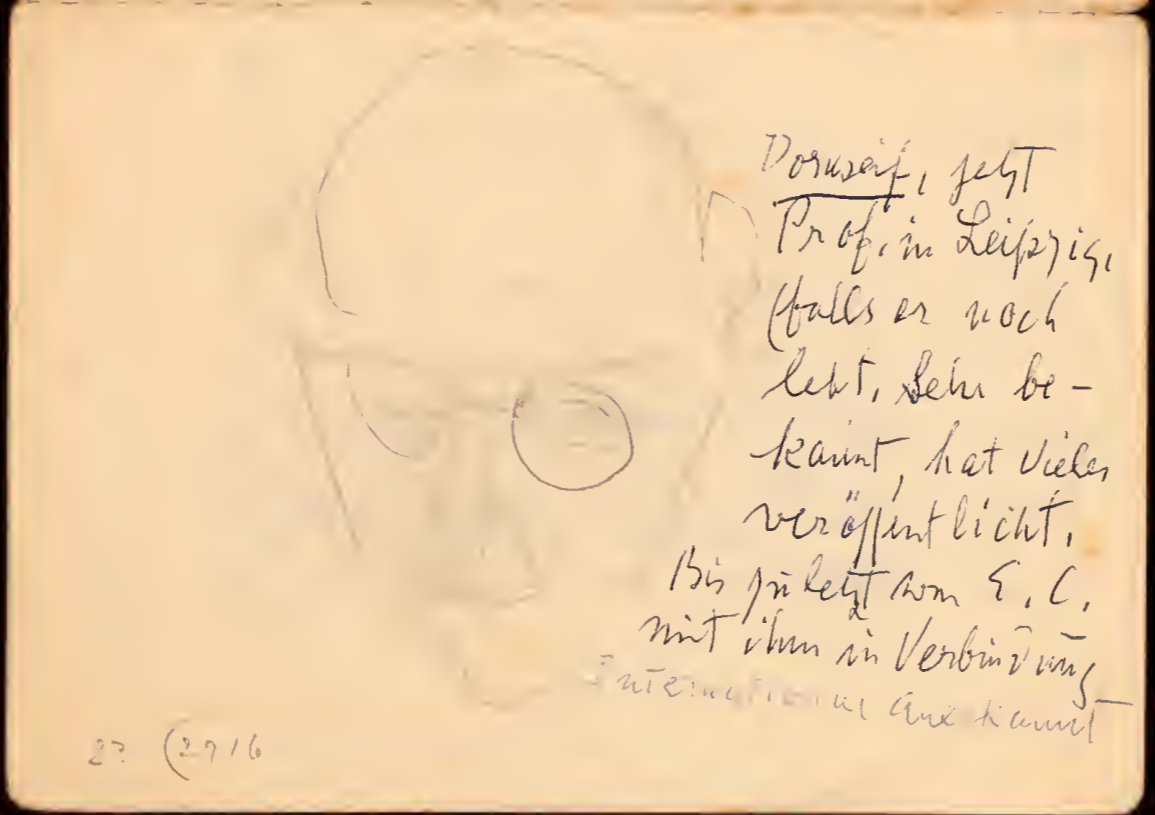 Dornseif, jetzt
Prof. in Leipzig,
(falls er noch
lebt. Sehr be-
kannt, hat vieles
veröffentlicht.
Bis zuletzt vom E. C.
mit ihm in Verbindung
International anerkannt
2? (2916